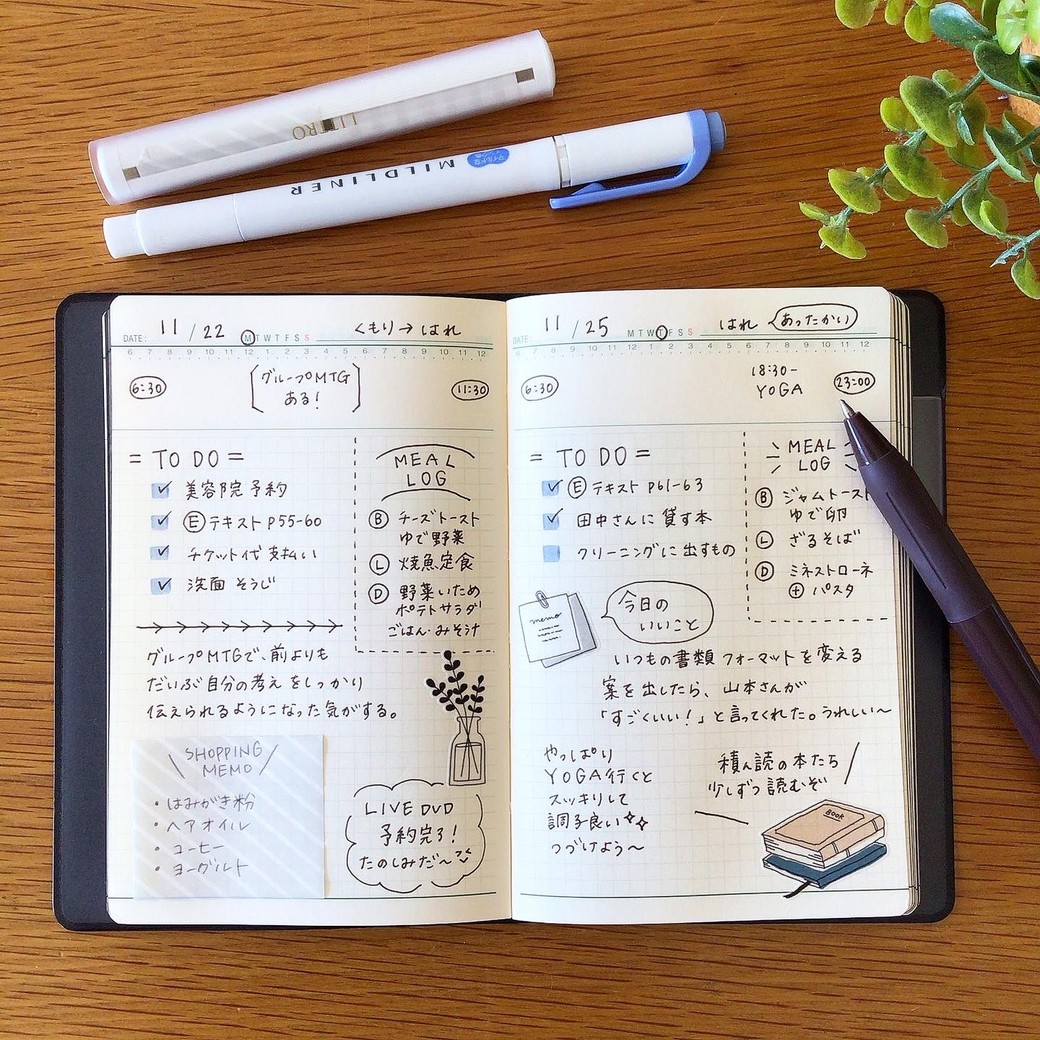 LITTRO
MILDLINER
マイルドライナー
DATE: 11 / 22 M T W T F S S くもり→はれ
6 7 8 9 10 11 12 1 2 3 4 5 6 7 8 9 10 11 12
6:30
グループMTG
ある!
11:30
= TO DO =
美容院予約
Ⓔテキスト P55-60
チケット代支払い
洗面 そうじ
MEAL
LOG
Ⓑ チーズトースト
ゆで野菜
Ⓛ 焼魚定食
Ⓓ 野菜いため
ポテトサラダ
ごはん・みそ汁
グループMTGで、前よりも
だいぶ自分の考えをしっかり
伝えられるようになった気がする。
SHOPPING
MEMO
・はみがき粉
・ヘアオイル
・コーヒー
・ヨーグルト
LIVE DVD
予約完了!
たのしみだ〜
DATE: 11 / 25 M T W T F S S はれ あったかい
6 7 8 9 10 11 12 1 2 3 4 5 6 7 8 9 10 11 12
6:30
18:30-
YOGA
23:00
= TO DO =
Ⓔテキスト P61-63
田中さんに貸す本
クリーニングに出すもの
MEAL
LOG
Ⓑ ジャムトースト
ゆで卵
Ⓛ ざるそば
Ⓓ ミネストローネ
⊕ パスタ
memo
今日の
いいこと
いつもの書類フォーマットを変える
案を出したら、山本さんが
「すごくいい!」と言ってくれた。うれしい〜
やっぱり
YOGA行くと
スッキリして
調子良い
つづけよう〜
積ん読の本たち
少しずつ読むぞ
BOOK